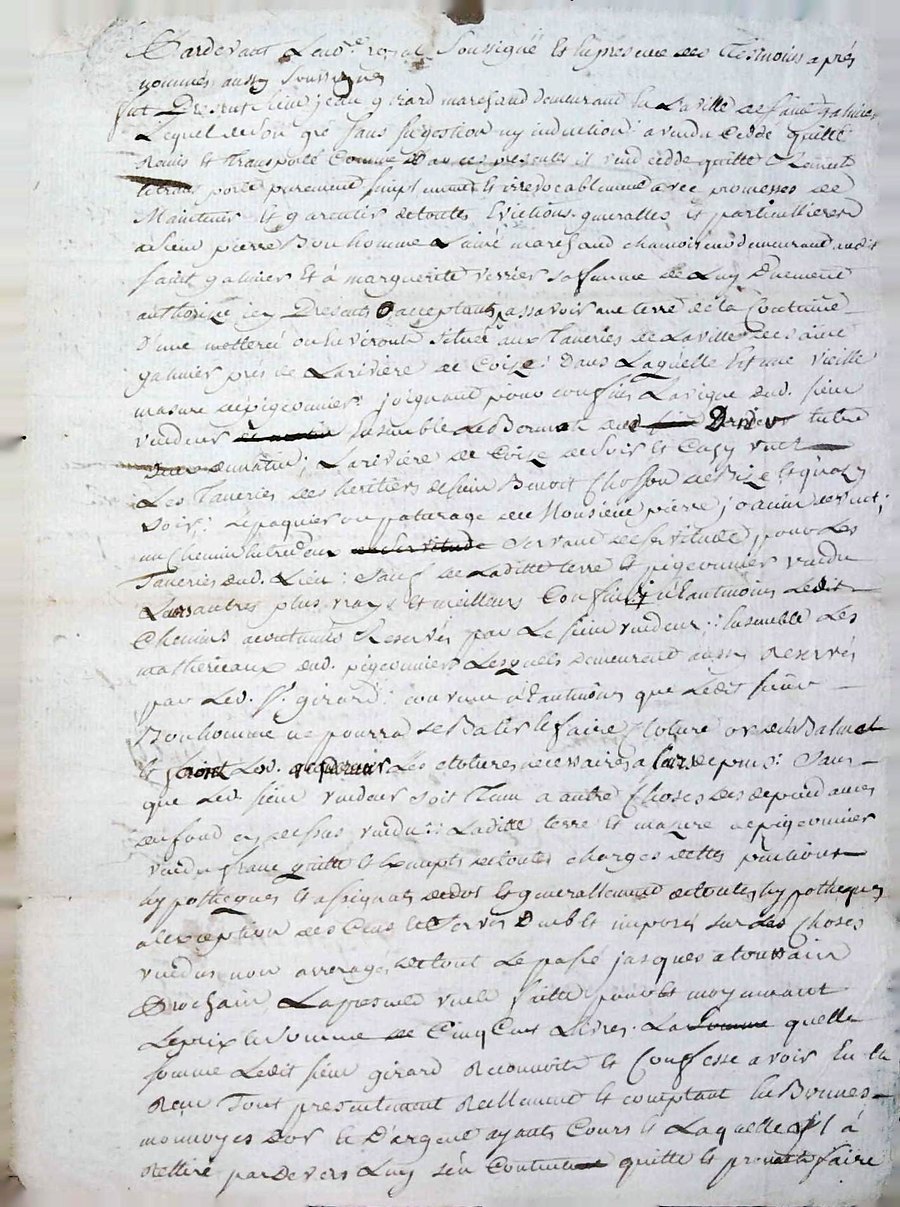 Pardevant Le no.re royal Soussigné Et En presence des Tesmoins apres
nommes aussy Soussignes
fut Present sieur jean girard marchand demeurant En La ville de saint galmier
Lequel de son gré sans sugestion ny induction a vendu cedde quitte
Remis Et Transporté Comme Par ces presentes il vend cedde quitte Remet
Et transporte purement simplement Et irrevocablement avec promesses de
Maintenir Et garentir de toutes Evictions generalles Et particullieres
a sieur pierre Bonhomme Lainé marchand chamoiseur demeurant audit
saint galmier Et à marguerite verrier sa femme de Luy Duement
authorisée icy Presents acceptants assavoir une terre de la Contenue
D'une metteree ou Environt située aux Taneries de La ville de saint
galmier pres de La rivière de Coise Dans Laquelle Est une vieille
masure de pigeonnier joignant pour confins La vigne dud. sieur
vendeur Ensemble
de matin; La rivière de Coise de soir Et
Les Taneries des heritiers de sieur Benoit de Bize Et
soir; Le paquier ou paturage de Monsieur pierre
un Chemin Entredeux servant de servitude pour Les
Taneries dud. Lieu; sauf de Laditte terre Et pigeonnier vendu
Leurs autres plus vrays Et meilleurs Confins Et neantmoins Ledit
Chemin Reservés par Le sieur vendeur; Ensemble Les
matheriaux dud. pigeonnier Lesquels demeurent aussy Reservés
par Led. Sr. girard; convenu neantmoins que Ledit sieur
Bonhomme ne pourra
Et Led. Les clotures necessaires a depens; Sans
que Led. sieur vendeur soit Tenu a autre Choses des dependances
du fond cy dessus vendu; Laditte terre Et mazure de pigeonnier
vendu franc quitte Et Exempts de toutes charges dettes pentions
hypotheques Et assignats de dot Et generallement de toutes hypotheques
a lexception des Cens Et Servis Dubs Et imposés sur Les Choses
vendues non arreragés de tout Le passé jusques a toussain
Prochain La presente vente faitte pour Et moyennant
Le prix Et Somme de Cinq Cens Livres La quelle
somme Ledit sieur girard Reconnoit Et Confesse avoir Eu Et
Receu Tout presentement Reellement Et comptant En Bonnes
monnoyes Dor Et D'argent ayants Cours Et Laquelle il à
Rettiré par Devers Luy sen Contente quitte Et promet faire